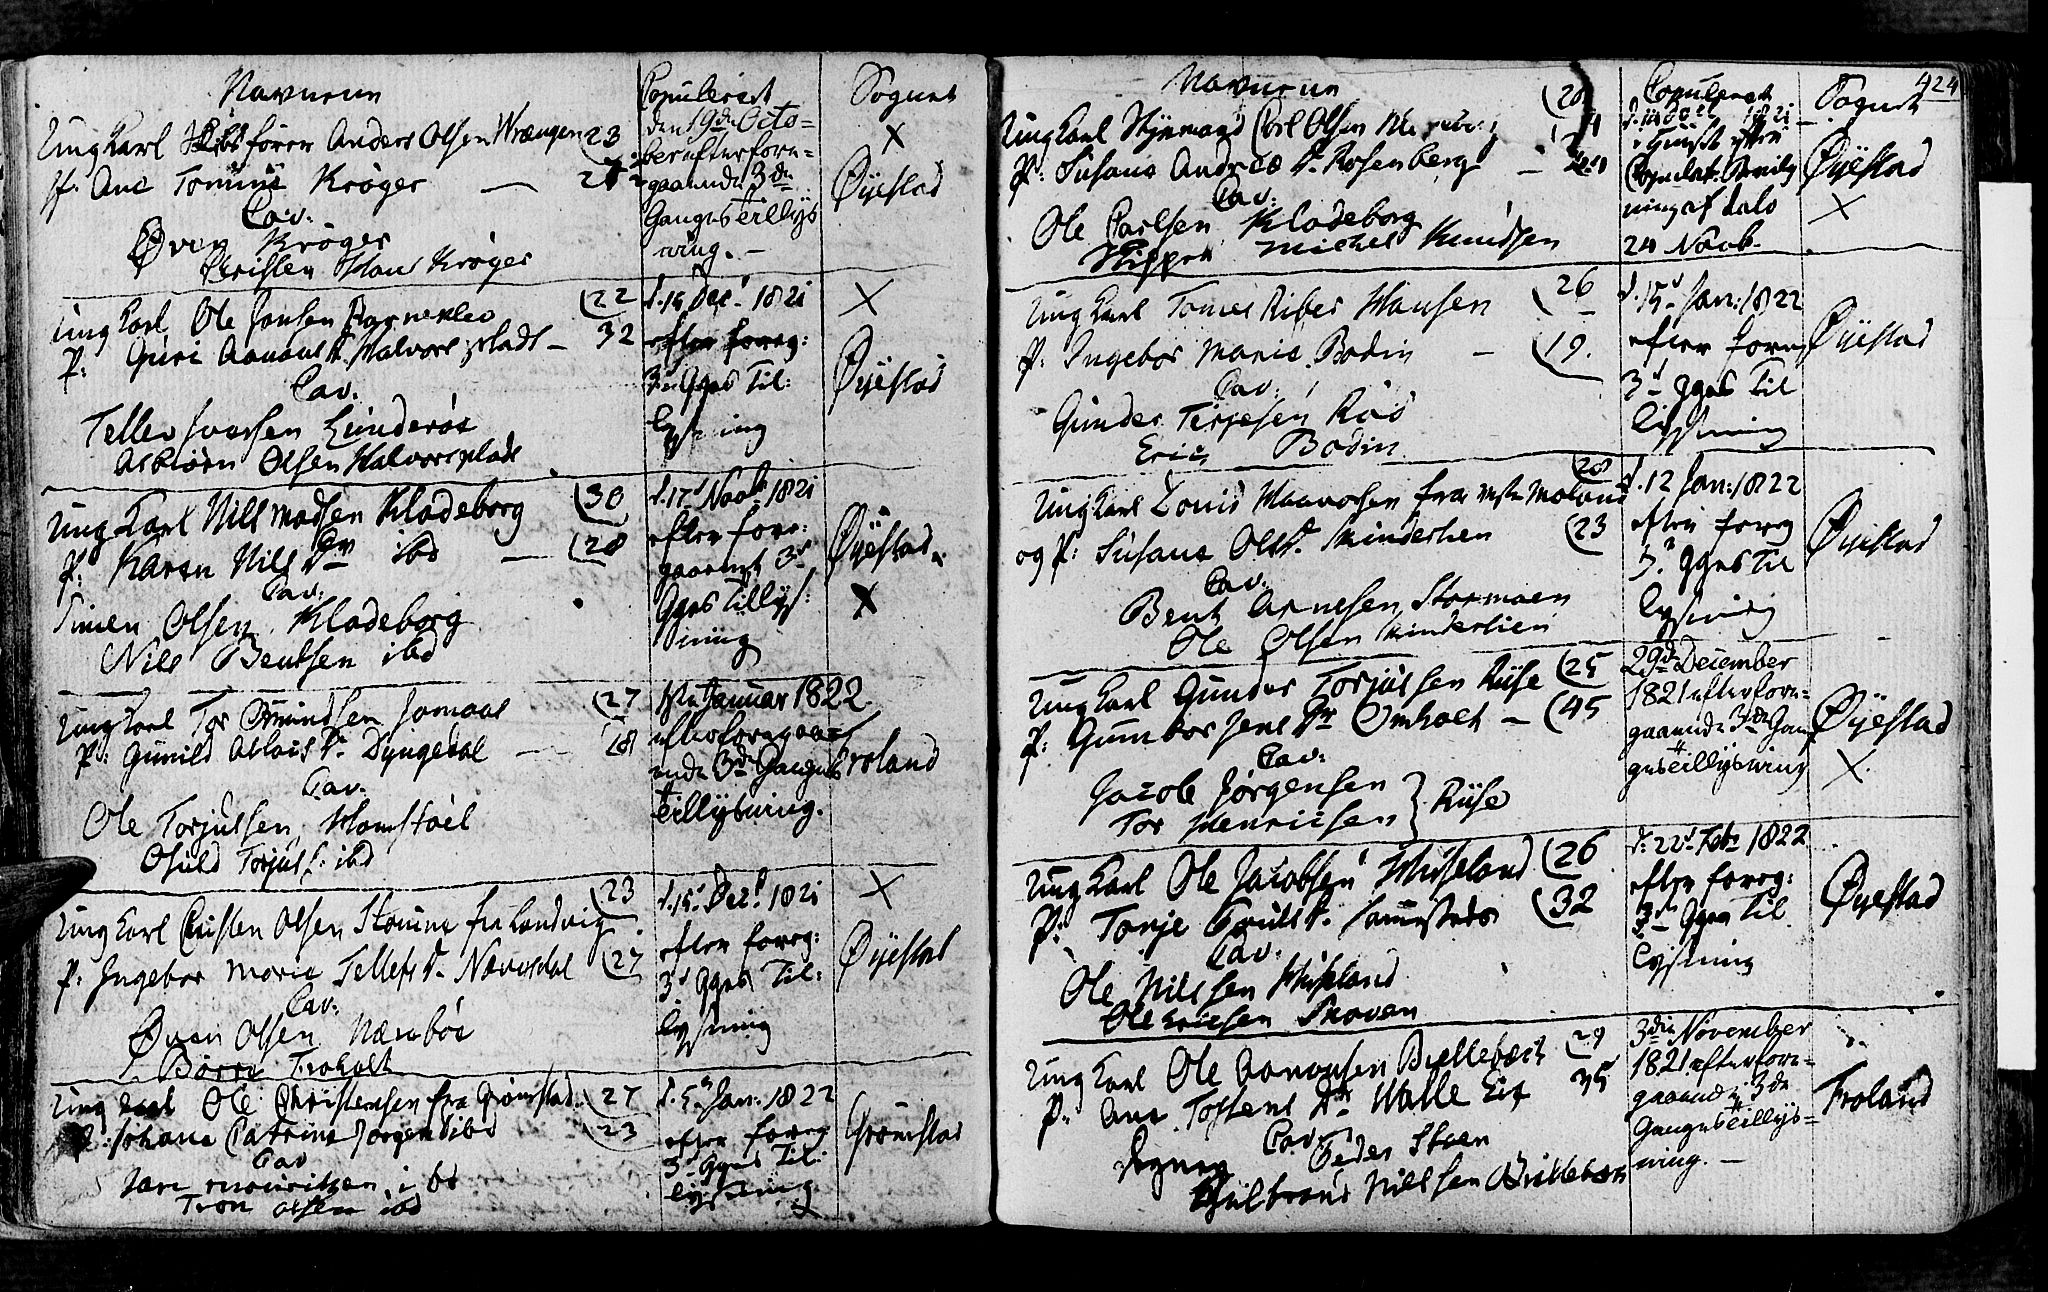 Navnene
Copuleret
Sognet
Ung Karl Skibsfører Anders Olsen Wrængen 23
P. Ane Tomine Krøger — 27
Cav:
Øven Krøger
Christen Hans Krøger
den 19de Octo-
ber efter fore-
gaaende 3de
Ganges Tillys
ning. —
X
Øyestad
Ung Karl Ole Jensen Barneklev 22
P: Guri Aanons D. Halvorsplads — 32
Cav.
Tellev Iversen Lunderøe
Asbiørn Olsen Halvorsplads
d. 15 Dec. 1821
efter foreg:
3de Gges Til:
lysning
X
Øyestad
Ung Karl Nils Madsen Kladeborg 30
P: Karen Nils Dr ibd — 28
Cav:
Simen Olsen Kladeborg
Nils Bentsen ibd
d. 17d Novb. 1821
efter fore:
gaaend 3d
Gges Tillys:
ning
Øyestad
X
Ung Karl Tor Omundsen Jomaas 27
P: Gunild Aslags D. Dyngedal — 28
Cav.
Ole Torjussen Hamstøel
Osuld Torjus: ibd
1ste Januar 1822
efter foregaae
ende 3de Ganges
Tillysning.
Froland
Ung Karl Christen Olsen Stømne fra Landvig 23
P: Ingebor Maria Tellefs D. Nævesdal 27
Cav:
Øven Olsen Næsebøe
Børre Froholt
d. 15d Dec. 1821
efter foreg:
3d Gges Til:
lysning
X
Øyestad
Ung Karl Ole Christensen fra Grømstad 27
P: Johane Catrine Jørgens ibd 23
Cav
Jens Mouritzen ibd
Tron Olsen ibd
d. 5te Jan: 1822
efter foreg
3d Gges Til:
lysning
Grømstad
424
Navnene
Copuleret
Sognet
Ung Karl Styrmand Carl Olsen 28
P: Susane Andrea D. Rosenberg —
Cav:
Ole Carlsen Kladeborg
Skipper Michel Knudsen
1821
Copulat. Bevilg
ning af dato
24 Novb.
Øyestad
X
Ung Karl Tomes Riber Hansen 26
P: Ingebor Marie Bodin — 19.
Cav:
Gunder Terjesen Røs
Eric Bodin
d. 15d Jan: 1822
efter foreg
3d Gges Til
lysning
Øyestad
28
Ung Karl Louis Haavorsen fra Østre Moland
og P: Susane Ols D. Skinderlien 23
Cav:
Bent Arnesen Stormoen
Ole Olsen Skinderlien
d. 12 Jan: 1822
efter foreg
3d Gges Til
lysning
Øyestad
Ung Karl Gunder Torjussen Riise 25
P: Gumbor Jens Dr Omholt — 45
Cav:
Jacob Jørgensen
Tor Henricsen } Riise
29de December
1821 efter fore-
gaaende 3de Gan
ges Tillysning
Øyestad
X.
Ung Karl Ole Jacobsen Huseland 26
P: Tonje Knuts D. 32
Cav:
Ole Nilsen Huseland
Ole Ericsen Skoven
d: 22d Feb 1822
efter foreg:
3de Gges Til
lysning
Øyestad
Ung Karl Ole Aanonsen Bellebært 29
P: Ane Tostens Dr Walle Eie 35
Cav:
Peder Steen
Gulbrand Nilsen
3die November
1821 efter fore-
gaaende 3de
Ganges Tillys-
ning. —
Froland